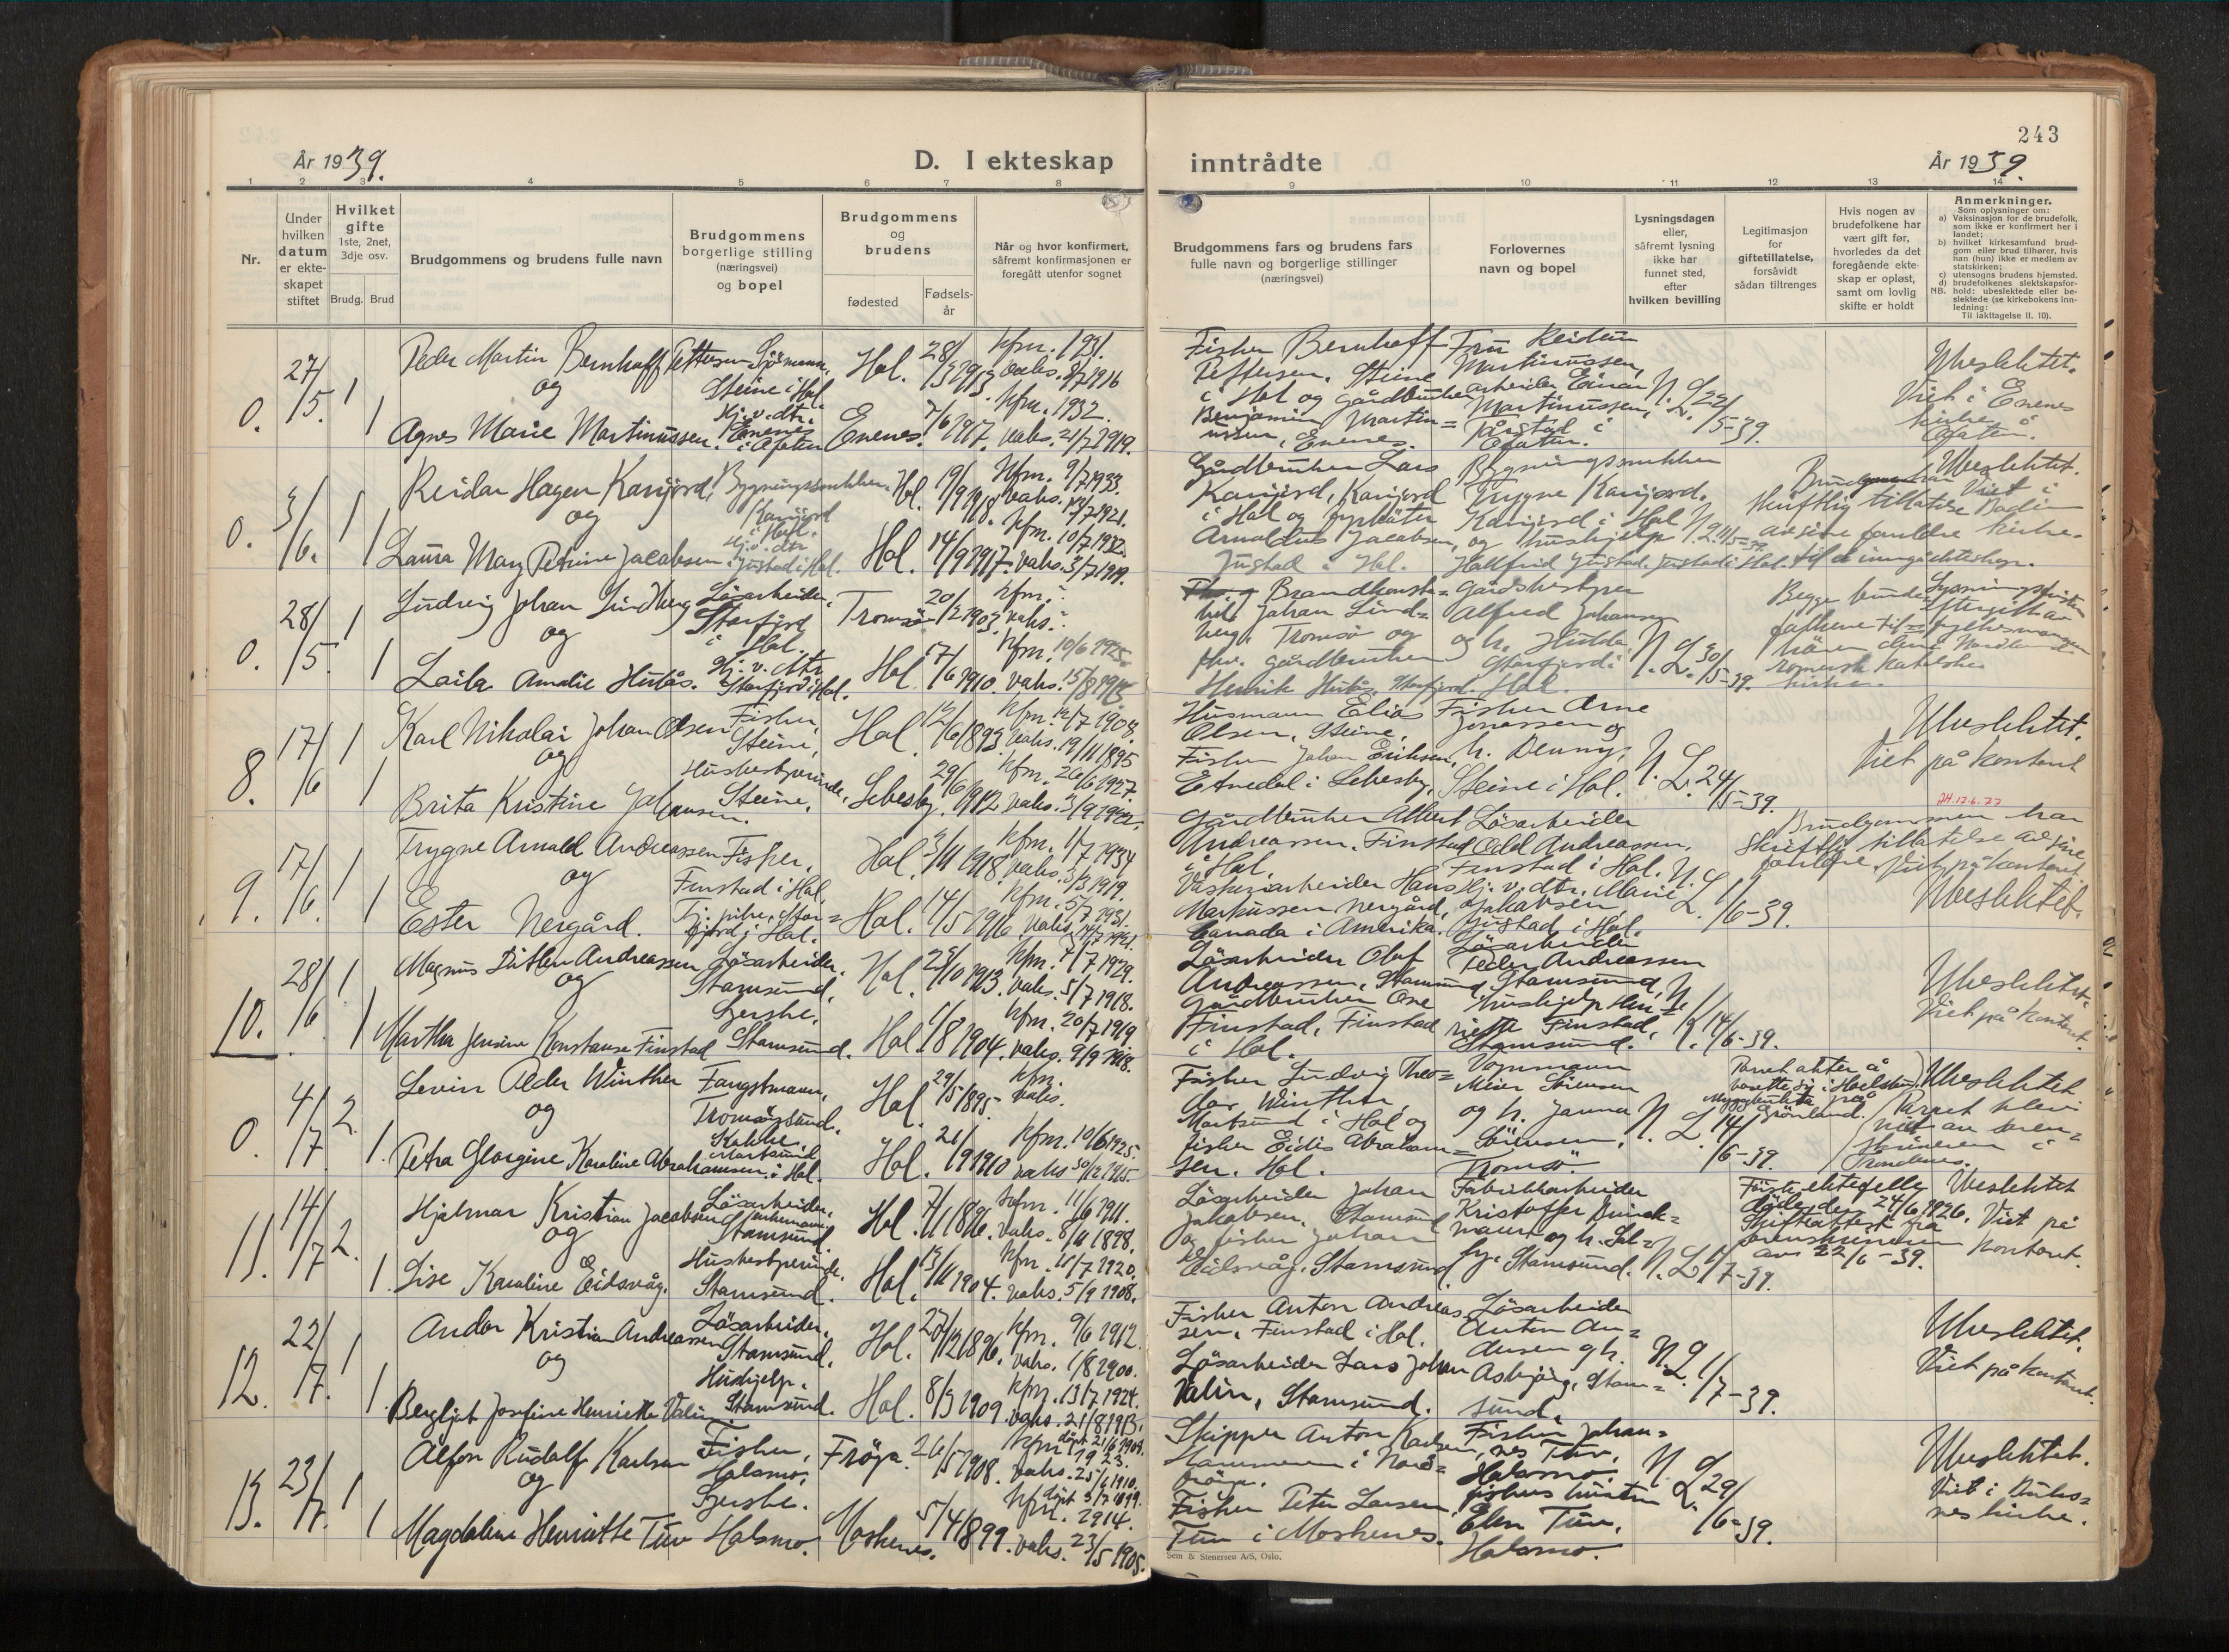 År 1939.
D. I ekteskap
inntrådte
243
År 1939.
1 2 3 4 5 6 7 8 9 10 11 12 13 14
Nr.
Under hvilken datum er ekteskapet stiftet
Hvilket gifte 1ste, 2net, 3dje osv.
Brudg. Brud
Brudgommens og brudens fulle navn
Brudgommens borgerlige stilling (næringsvei) og bopel
Brudgommens og brudens
fødested
Fødsels-år
Når og hvor konfirmert, såfremt konfirmasjonen er foregått utenfor sognet
Brudgommens fars og brudens fars fulle navn og borgerlige stillinger (næringsvei)
Forlovernes navn og bopel
Lysningsdagen eller, såfremt lysning ikke har funnet sted, efter hvilken bevilling
Legitimasjon for giftetillatelse, forsåvidt sådan tiltrenges
Hvis nogen av brudefolkene har vært gift før, hvorledes da det foregående ekteskap er opløst, samt om lovlig skifte er holdt
Anmerkninger.
Som oplysninger om:
a) Vaksinasjon for de brudefolk, som ikke er konfirmert her i landet;
b) hvilket kirkesamfund brudgom eller brud tilhører, hvis han (hun) ikke er medlem av statskirken;
c) utensogns brudens hjemsted.
d) brudefolkenes slektskapsforhold: ubeslektede eller beslektede (se kirkebokens innledning:
NB. Til iakttagelse II. 10).
0. 27/5. 1 Peder Martin Bernhoff Pettersen Sjömann, Steine i Hol. Hol. 28/3 1913. kfm. 1931. vaks. 8/7 1916
og
1 Agnes Marie Martinussen. Hj.v.dtr. Evenes Evenes. 7/6 1917. kfm. 1932. vaks. 21/7 1919.
Fisker Bernhoff Pettersen, Steine i Hol og gårdbruker Benjamin Martinussen, Evenes.
Fru Reidun Martinussen, arbeider Einar Martinussen,
N. L. 22/5-39.
Ubeslektet. Viet i Evenes kirke
0. 3/6. 1 Reidar Hagen Karijord, Bygningssnekker, Karijord i Hol. Hol. 19/9 1918. kfm. 9/7 1933. vaks. 13/7 1921.
og
1 Laura Mary Petrine Jacobsen. Hj.v.dtr. Justad i Hol. Hol. 14/9 1917. kfm. 10/7 1932. vaks. 3/7 1919.
Gårdbruker Lars Karijord, Karijord i Hol og fyrbøter Arnoldus Jacobsen, Justad i Hol.
Bygningssnekker Trygve Karijord, Karijord i Hol og hushjelp Hallfrid Justad, Justad i Hol.
Brudgommen skriftlig tillatelse av sine foreldre til å inngå ekteskap.
Ubeslektet. Viet i kirke.
0. 28/5. 1 Ludvig Johan Lindberg Løsarbeider, Storfjord i Hol. Tromsø 20/2 1903. kfm. ? vaks. ?
og
1 Laila Amalie Hutås. Hj.v.dtr. Storfjord i Hol. Hol 17/6 1910. kfm. 10/6 1925. vaks. 15/8 1913.
Brandkonstabel Johan Lindberg, Tromsø og fhv. gårdbruker Henrik Hutås, Storfjord.
Gårdsbestyrer Alfred Johansen og h. Hulda Storfjord i Hol.
N. L. 30/5-39.
8. 17/6 1 Karl Nikolai Johan Olsen Fisker, Steine, Hol. 12/6 1893. kfm. 12/7 1908. vaks. 19/11 1895
og
1 Brita Kristine Johansen. Husbestyrerinde, Steine, Lebesby. 29/6 1912 kfm. 26/6 1927. vaks. 3/9 1922.
Husmann Elias Olsen, Steine, Fisker Johan Eriksen, i Lebesby,
Fisker Arne Jonassen og h. Denny, Steine i Hol.
N. L. 24/5-39.
Ubeslektet. Viet på kontoret
9. 17/6. 1 Trygve Arnold Andreassen Fisker, Finstad i Hol. Hol. 3/11 1918. kfm. 1/7 1934 vaks. 3/3 1919.
og
1 Ester Nergård. Tj.pike, Storfjord i Hol. Hol. 14/5 1916. kfm. 5/7 1931.
Gårdbruker Albert Andreassen, Finstad i Hol. Hans Markussen Nergård, Canada i Amerika.
Løsarbeider Odd Andreassen, Finstad i Hol. Hj.v.dtr. Marie Jakobsen Justad i Hol.
N. L. 1/6-39.
Brudgommen har skriftlig tillatelse av sine foreldre. Viet på kontoret. Ubeslektet.
10. 28/6 1 Magnus Ditlev Andreassen Løsarbeider, Stamsund, Hol. kfm. 7/7 1929. vaks. 5/7 1918.
og
1 Martha Jensine Konstanse Finstad Stamsund. Hol. 1904. kfm. 20/7 1919. vaks. 9/9 1918.
Løsarbeider Olaf Andreassen, Stamsund, Gårdbruker Ove Finstad, Finstad i Hol.
Løsarbeider Peder Andreassen Stamsund, Hushjelp Henriette Finstad, Stamsund.
14/6-39.
Ubeslektet. Viet på kontoret.
0. 4/7. 2. Levin Peder Winther Fangstmann, Tromsøysund. Hol. 29/5 1895. kfm. vaks.
og
1. Petra Georgine Karoline Abrahamsen Kokke, Mortsund i Hol. Hol. 21/9 1910 kfm. 10/6 1925. vaks 30/12 1915.
Fisker Ludvig Theodor Winther, Mortsund i Hol og fisker Eidis Abrahamsen. Hol.
Vognmann Meier Sörensen og h. Janna Sörensen, Tromsø.
N. L. 14/6-39.
Parret akter å bosette sig i Myggbukta på Grønland.
Ubeslektet Parret blev viet av sorenskriveren i Trondenes.
11. 14/7 2. Hjalmar Kristian Jacobsen Løsarbeider, enkemann, Stamsund. Hol. 7/11 1896. kfm. 11/6 1911. vaks. 8/11 1898.
og
1 Lise Karoline Eidsvåg. Husbestyrerinde, Stamsund. Hol. 13/11 1904. kfm. 18/7 1920. vaks. 5/9 1908.
Løsarbeider Johan Jakobsen, Stamsund og fisker Johan Eidsvåg, Stamsund.
Fabrikkarbeider Kristoffer og h. Stamsund.
N. L. 1/7-39.
Første ektefelle døde den 24/6 1926. Skifteattest fra sorenskriveren av 22/6-39.
Ubeslektet Viet på kontoret.
12. 22/7. 1 Andor Kristian Andreassen Løsarbeider, Stamsund, Hol. 27/12 1896. kfm. 9/6 1912. vaks. 1/8 1900.
og
1. Bergljot Josefine Henriette Valin. Hushjelp. Stamsund. Hol. 8/3 1909. kfm. 13/7 1924. vaks. 21/8 1913.
Fisker Anton Andreassen, Finstad i Hol. Løsarbeider Lars Johan Valin, Stamsund.
Løsarbeider Anton Andersen og h. Asbjørg, Stamsund.
N. L. 1/7-39.
Ubeslektet. Viet på kontoret.
13. 23/7. 1 Alfon Rudolf Karlsen Fisker, Holsmo. Frøya. 26/5 1908. døpt 21/6 1908. kfm 1923. vaks. 25/6 1910.
og
1 Magdaline Henriette Tuv Holsmo. Moskenes. 5/4 1899. døpt 3/7 1899. kfm. 1914. vaks. 23/5 1905.
Skipper Anton Karlsen, Hammeren i Nord-Frøya. Fisker Peter Larsen Tuv i Moskenes.
Fisker Johannes Tuv, Holsmo. fiskers hustru Elen Tuv, Holsmo.
N. L. 29/6-39.
Ubeslektet. Viet i Buksnes kirke.
Sem & Stenersen A/S, Oslo.